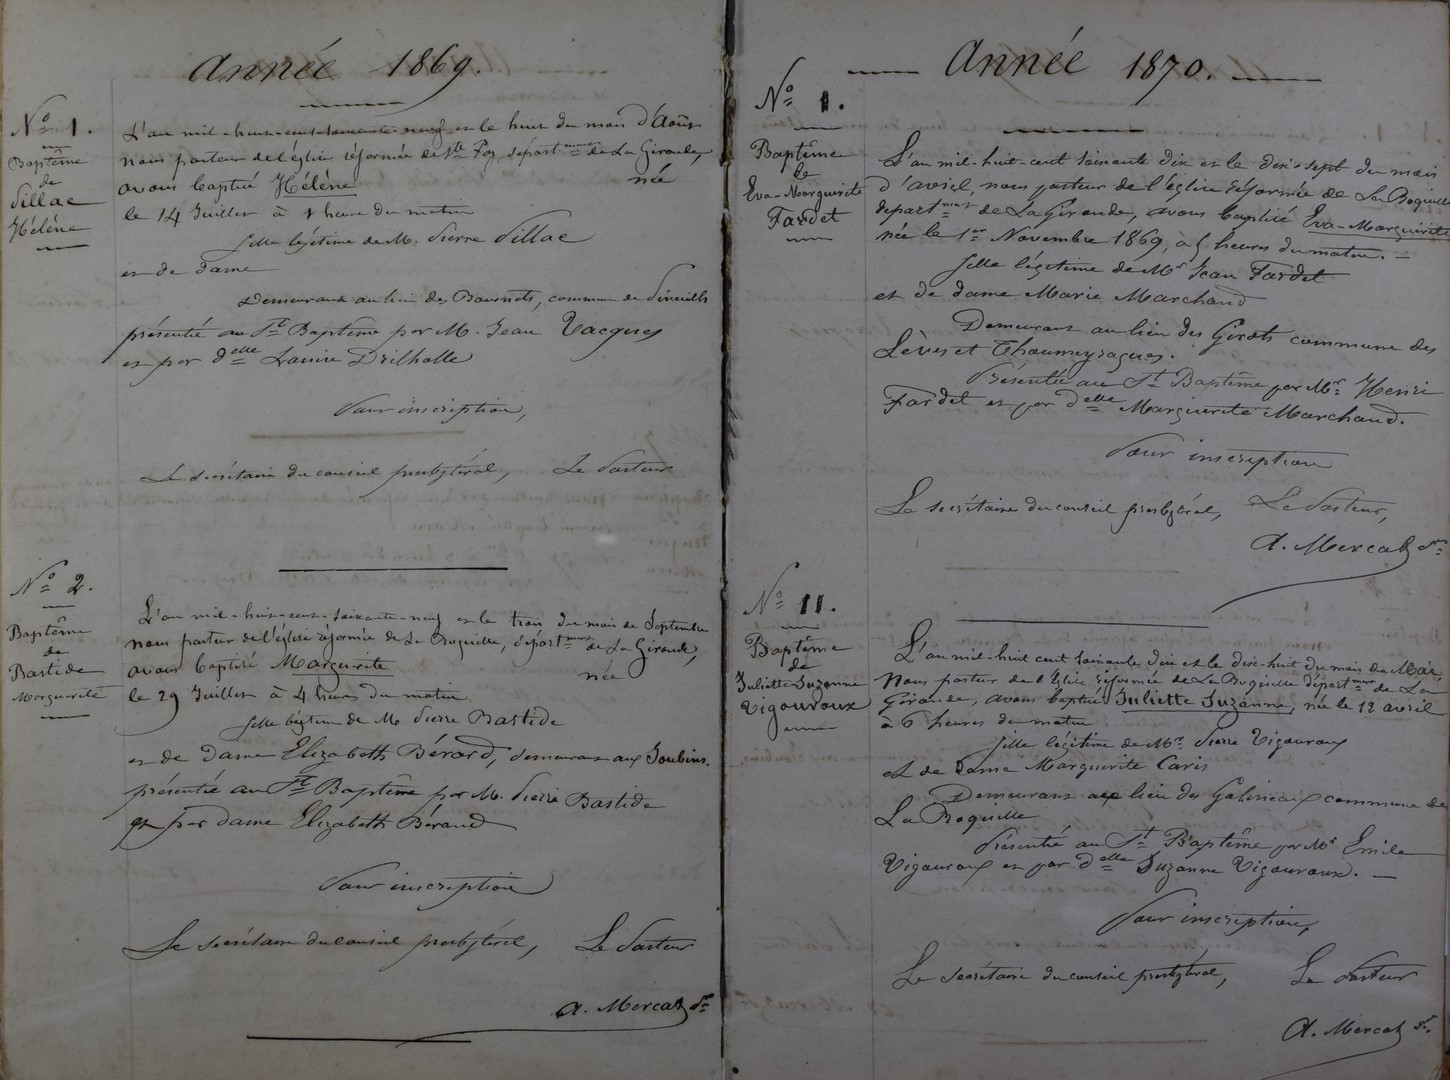 Année 1869.
No 1.
Baptême
de
Pillac
Hélène
L'an mil-huit-cent-soixante-neuf et le huit du mois d'Août
nous pasteur de l'église réformée de Ste Foy, départment de La Gironde,
avons baptisé Hélène née
le 14 Juillet à 1 heure du matin
fille légitime de M. Pierre Pillac
et de dame
Demeurant au lieu des, commune de
présentée au St Baptême par M. Jean Vacques
et par delle Drilholle
Pour inscription,
Le secrétaire du conseil presbytéral, Le Pasteur
No 2.
Baptême
de
Bastide
Marguerite
L'an mil-huit-cent-soixante-neuf et le trois du mois de Septembre
nous pasteur de l'église réformée de La Roquille, départment de La Gironde,
avons baptisé Marguerite née
le 29 Juillet à 4 heures du matin
fille légitime de M. Pierre Bastide
et de Dame Elizabeth Bérard, demeurant aux Joubins.
présentée au St Baptême par M. Pierre Bastide
et par Dame Elizabeth Béraud
Pour inscription
Le secrétaire du conseil presbytéral, Le Pasteur
A. Mercat pr
Année 1870.
No I.
Baptême
de
Eva-Marguerite
Fardet
L'an mil-huit-cent soixante dix et le dix-sept du mois
d'avril, nous pasteur de l'église réformée de La Roquille
départment de La Gironde, avons baptisé Eva-Marguerite
née le 1er Novembre 1869, à 5 heures du matin.
fille légitime de Mr Jean Fardet
et de dame Marie Marchand
Demeurant au lieu des Girots commune des
Lèves et Thoumeyragues.
Présentée au St Baptême par Mr Henri
Fardet et par delle Marguerite Marchand.
Pour inscription
Le secrétaire du conseil presbytéral, Le Pasteur,
A. Mercat pr
No II.
Baptême
de
Juliette-Suzanne
Vigouroux
L'an mil-huit cent soixante dix et le dix-huit du mois de Mai,
Nous pasteur de l'église réformée de La Roquille départment de La
Gironde, avons baptisé Juliette Suzanne, née le 12 avril
à 6 heures du matin
fille légitime de Mr Pierre Vigouroux
et de Dame Marguerite Caris
Demeurant au lieu des Galineaux commune de
La Roquille
Présentée au St Baptême par Mr Emile
Vigouroux et par delle Suzanne Vigouroux.
Pour inscription,
Le secrétaire du conseil presbytéral, Le Pasteur
A. Mercat pr.